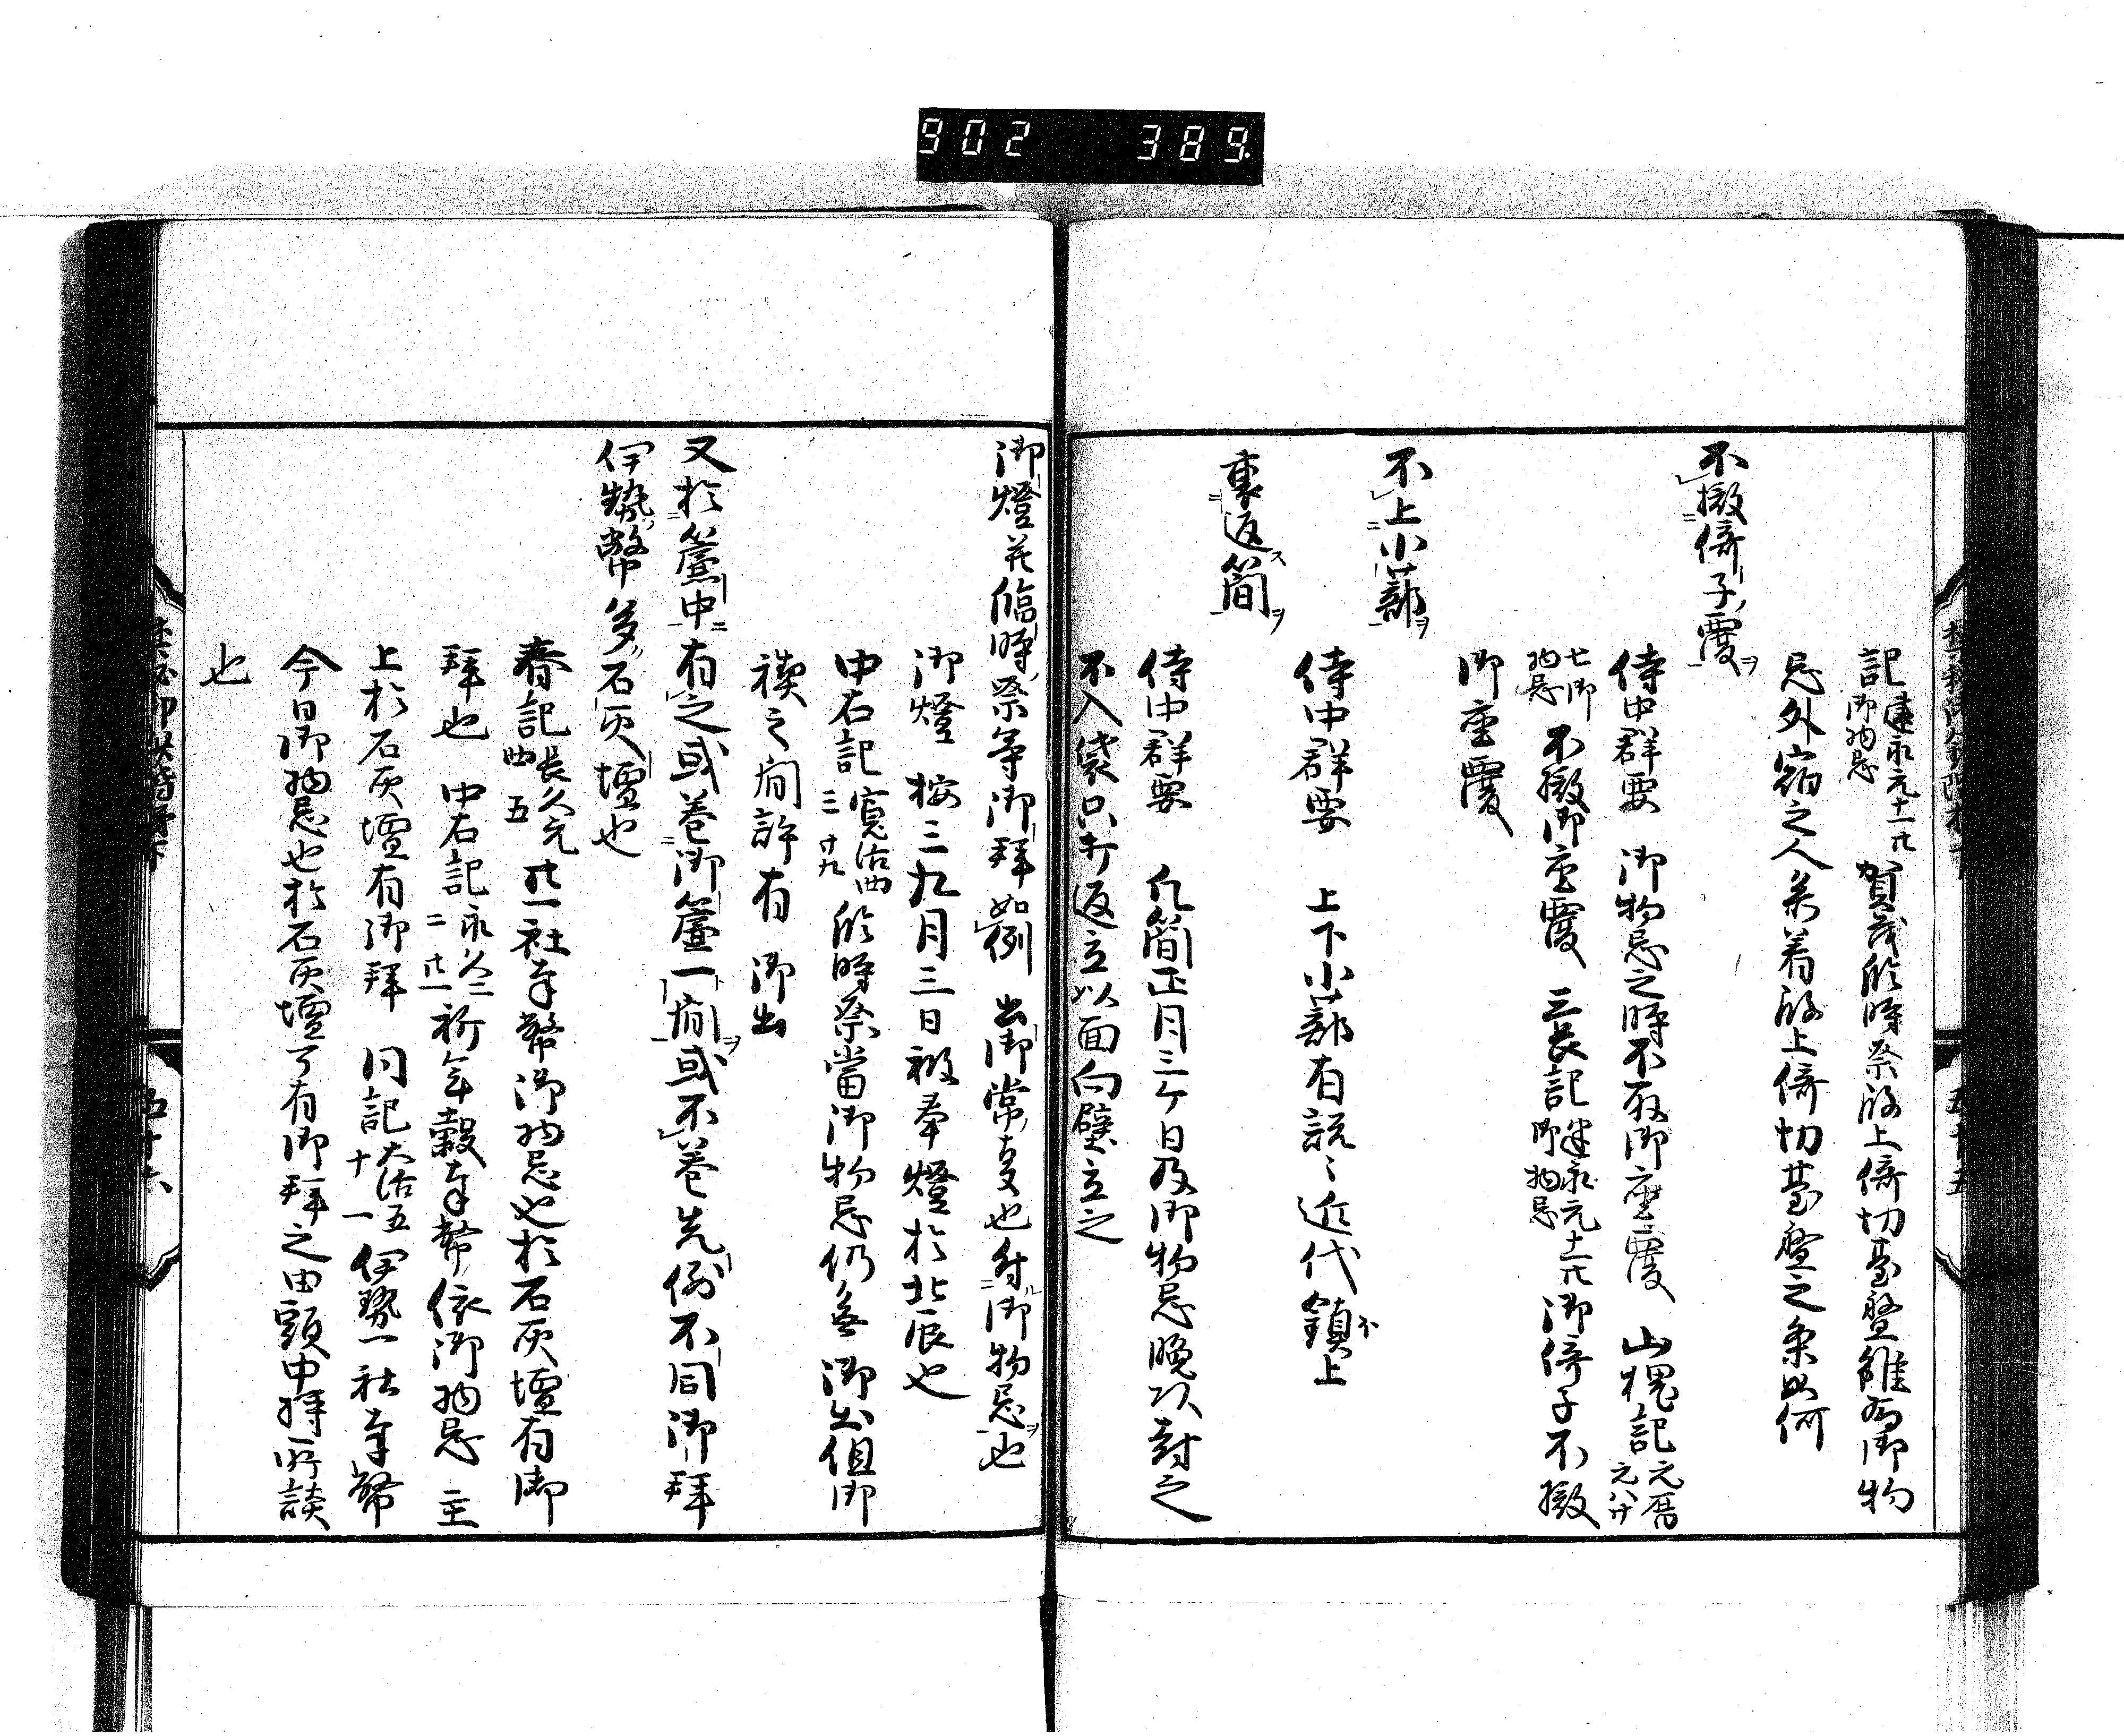 902 389
記 建永元十一廿 御物忌 賀茂臨時祭殿上倚切臺盤雖為御物
忌外宿之人参着殿上倚切臺盤之条如何
不撤倚子覆ヲ
侍中群要 御物忌之時不取御座覆 山槐記 元暦元八廿
七御物忌 不撤御座覆 三長記 建永元十一廿 御物忌 御倚子不撤
御座覆
不上小蔀ヲ
侍中群要 上下小蔀有説々近代鎮不上
裏返ス簡ヲ
侍中群要 凡簡正月三ケ日及御物忌晩次封之
不入袋只打返立以面向壁立之
五十五
御燈并臨時祭等御拝如例 出御常事也付ル御物忌ヲ也
御燈 按三九月三日被奉燈於北辰也
中右記 寛治四三廿九 臨時祭當御物忌仍無 御出但御
禊之間許有 御出
又於簾中有之或巻御簾一間ヲ或不巻先例不同御拝
伊勢幣多石灰壇也
春記 長久元四五 廿一社奉幣御物忌也於石灰壇有御
拝也 中右記 永久二二廿一 祈年穀奉幣依御物忌 主
上於石灰壇有御拝 同記 大治五十一 伊勢一社奉幣
今日御物忌也於石灰壇可有御拝之由頭中将所談
也
五十六